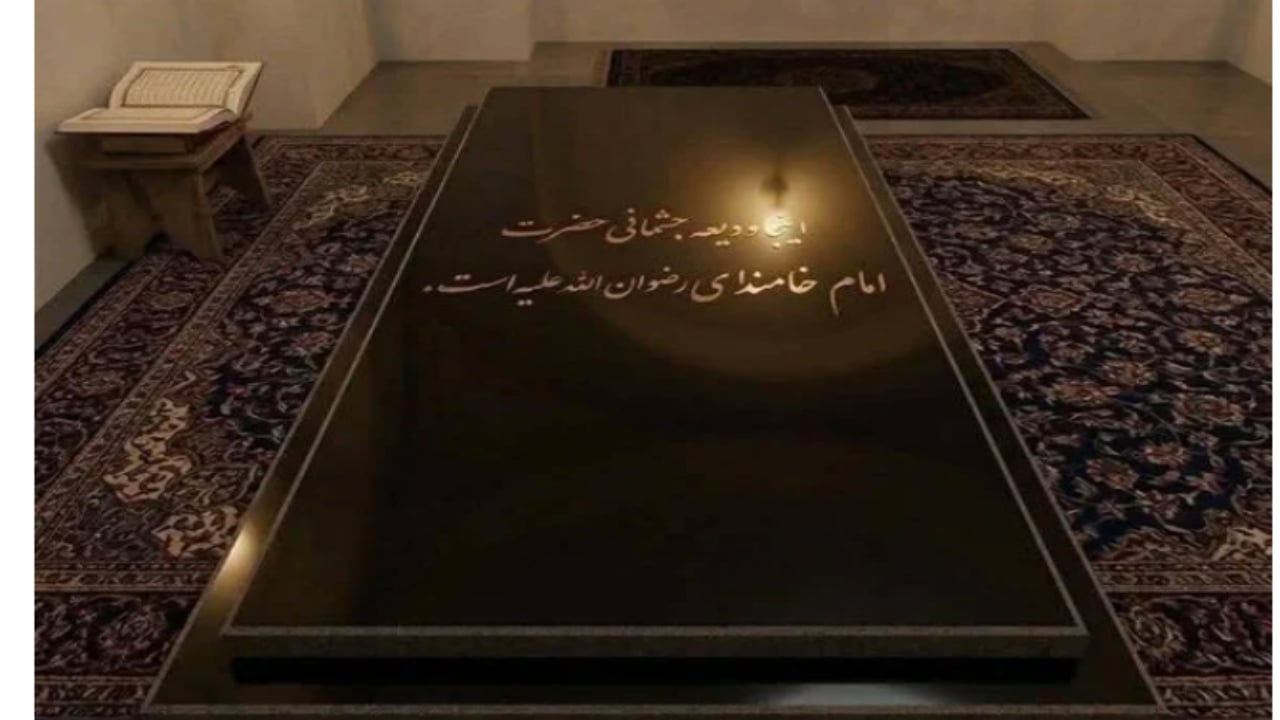 اینجا ودیعه جثمانی حضرت
امام خامندای رضوان الله علیه است.